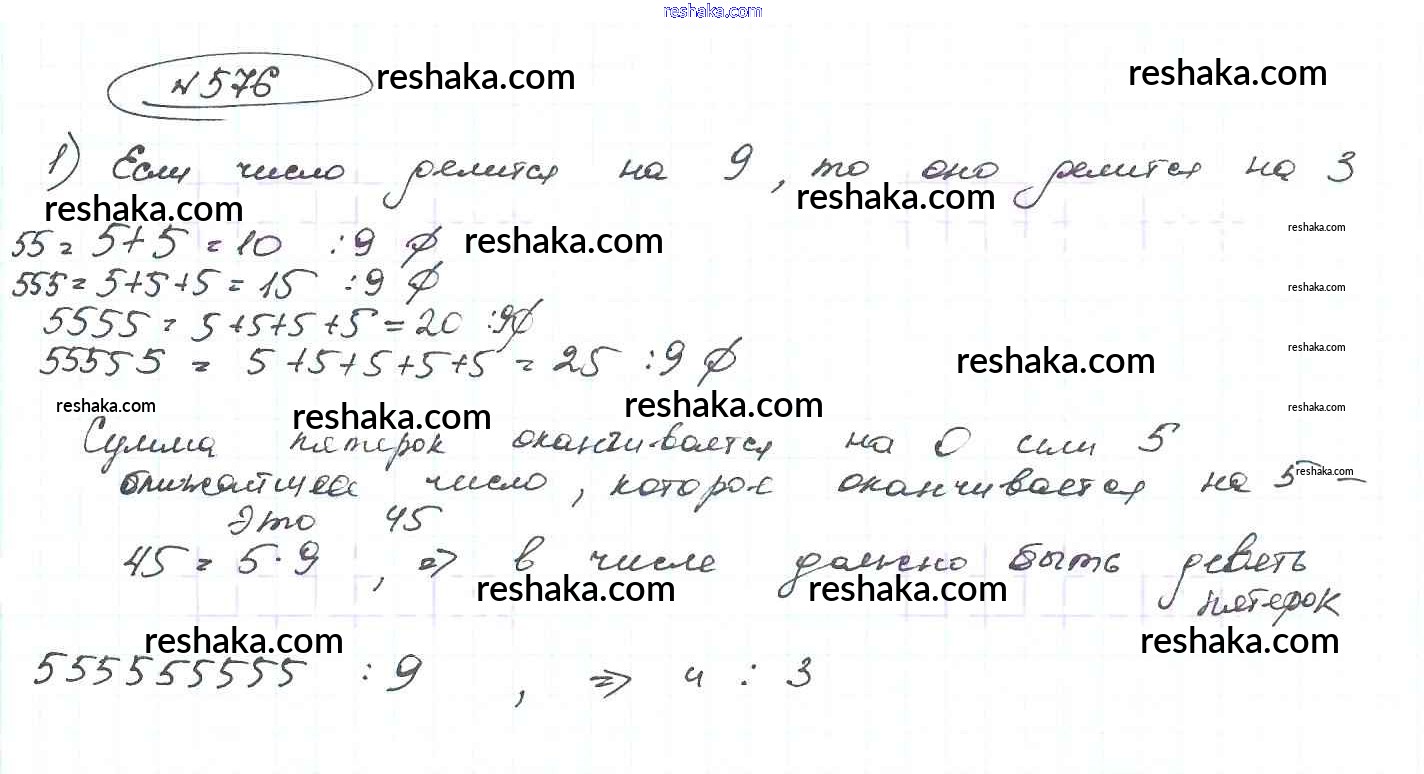 reshaka.com
№576 reshaka.com reshaka.com
1) Если число делится на 9, то оно делится на 3
reshaka.com reshaka.com
55 = 5+5 = 10 :9 ∅ reshaka.com reshaka.com
555 = 5+5+5 = 15 :9 ∅ reshaka.com
5555 = 5+5+5+5 = 20 :9∅
55555 = 5+5+5+5+5 = 25 :9 ∅ reshaka.com reshaka.com
reshaka.com reshaka.com reshaka.com reshaka.com
Сумма пятерок оканчивается на 0 или 5
ближайшее число, которое оканчивается на 5 – reshaka.com
это 45
45 = 5·9, => в числе должно быть девять
reshaka.com reshaka.com пятерок
reshaka.com reshaka.com
555555555 :9, => и : 3